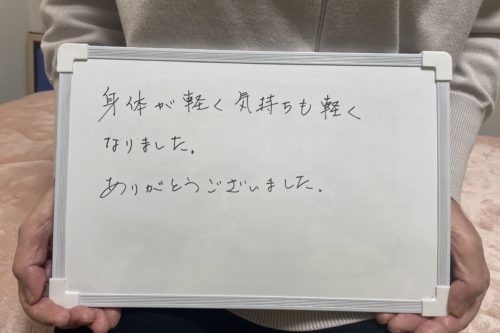 身体が軽く気持ちも軽く
なりました。
ありがとうございました。